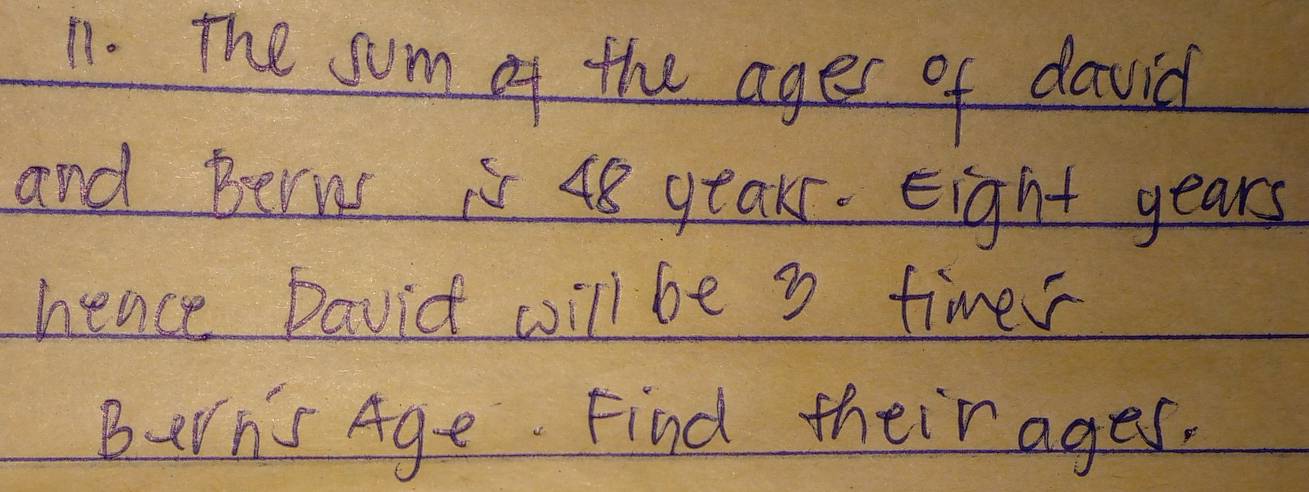 11. The sum of the ages of david
and Berns is 48 years. Eight years
hence David will be 3 times
Bern's Age. Find their ages.